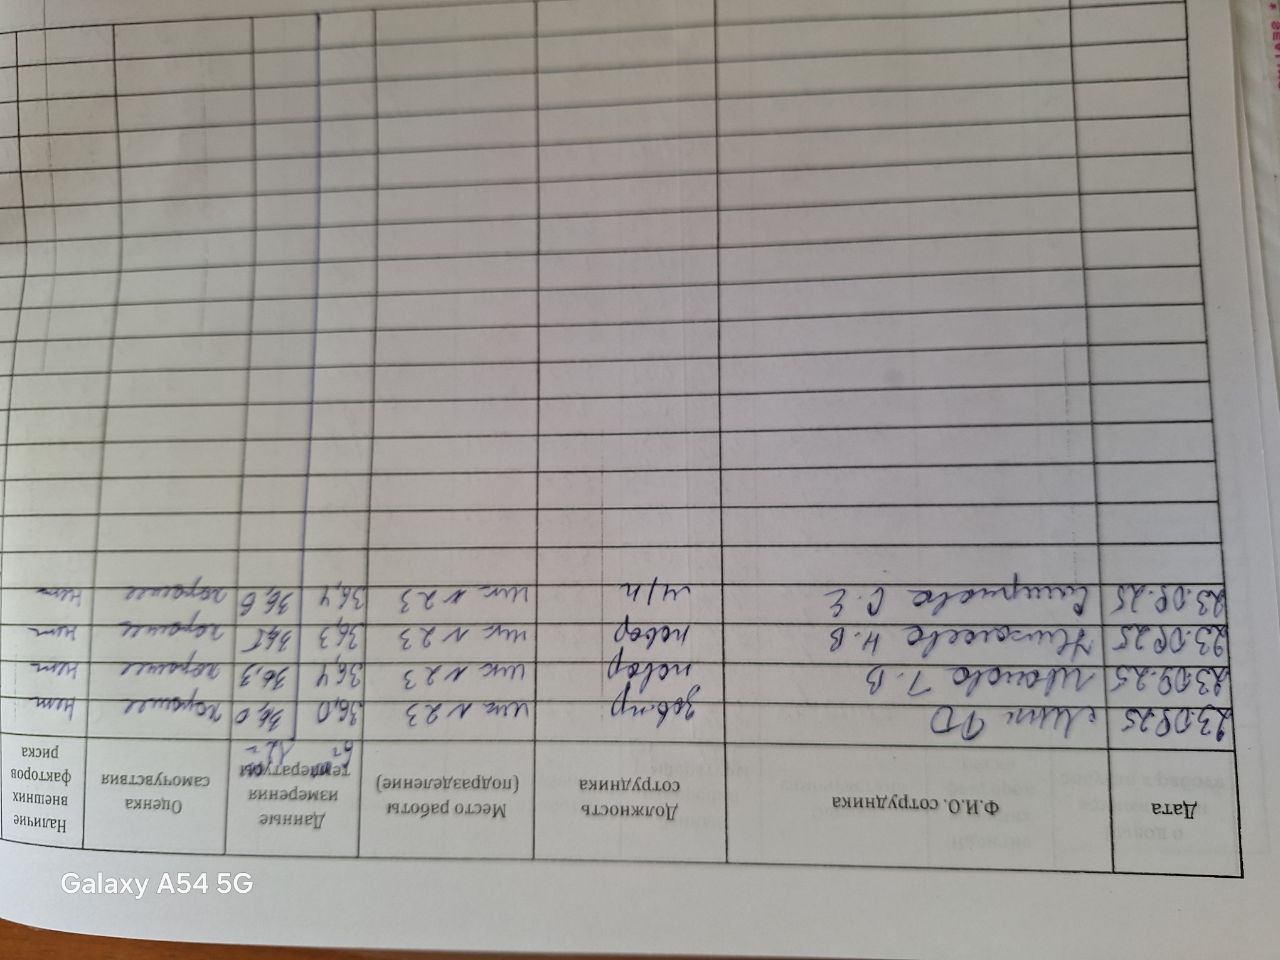 Дата Ф.И.О. сотрудника Должность сотрудника Место работы (подразделение) Данные измерения температуры Оценка самочувствия Наличие внешних факторов риска
12
23.09.25 Мин ФО зав.пр шк. N 23 36,0 36,0 хорошее нет
23.09.25 Иванова Т. В повар шк. N 23 36,4 36,3 хорошее нет
23.09.25 Н.В повар шк. N 23 36,3 36,5 хорошее нет
23.09.25 Смирнова С. Е шк. N 23 36,4 36,6 хорошее нет
Galaxy A54 5G